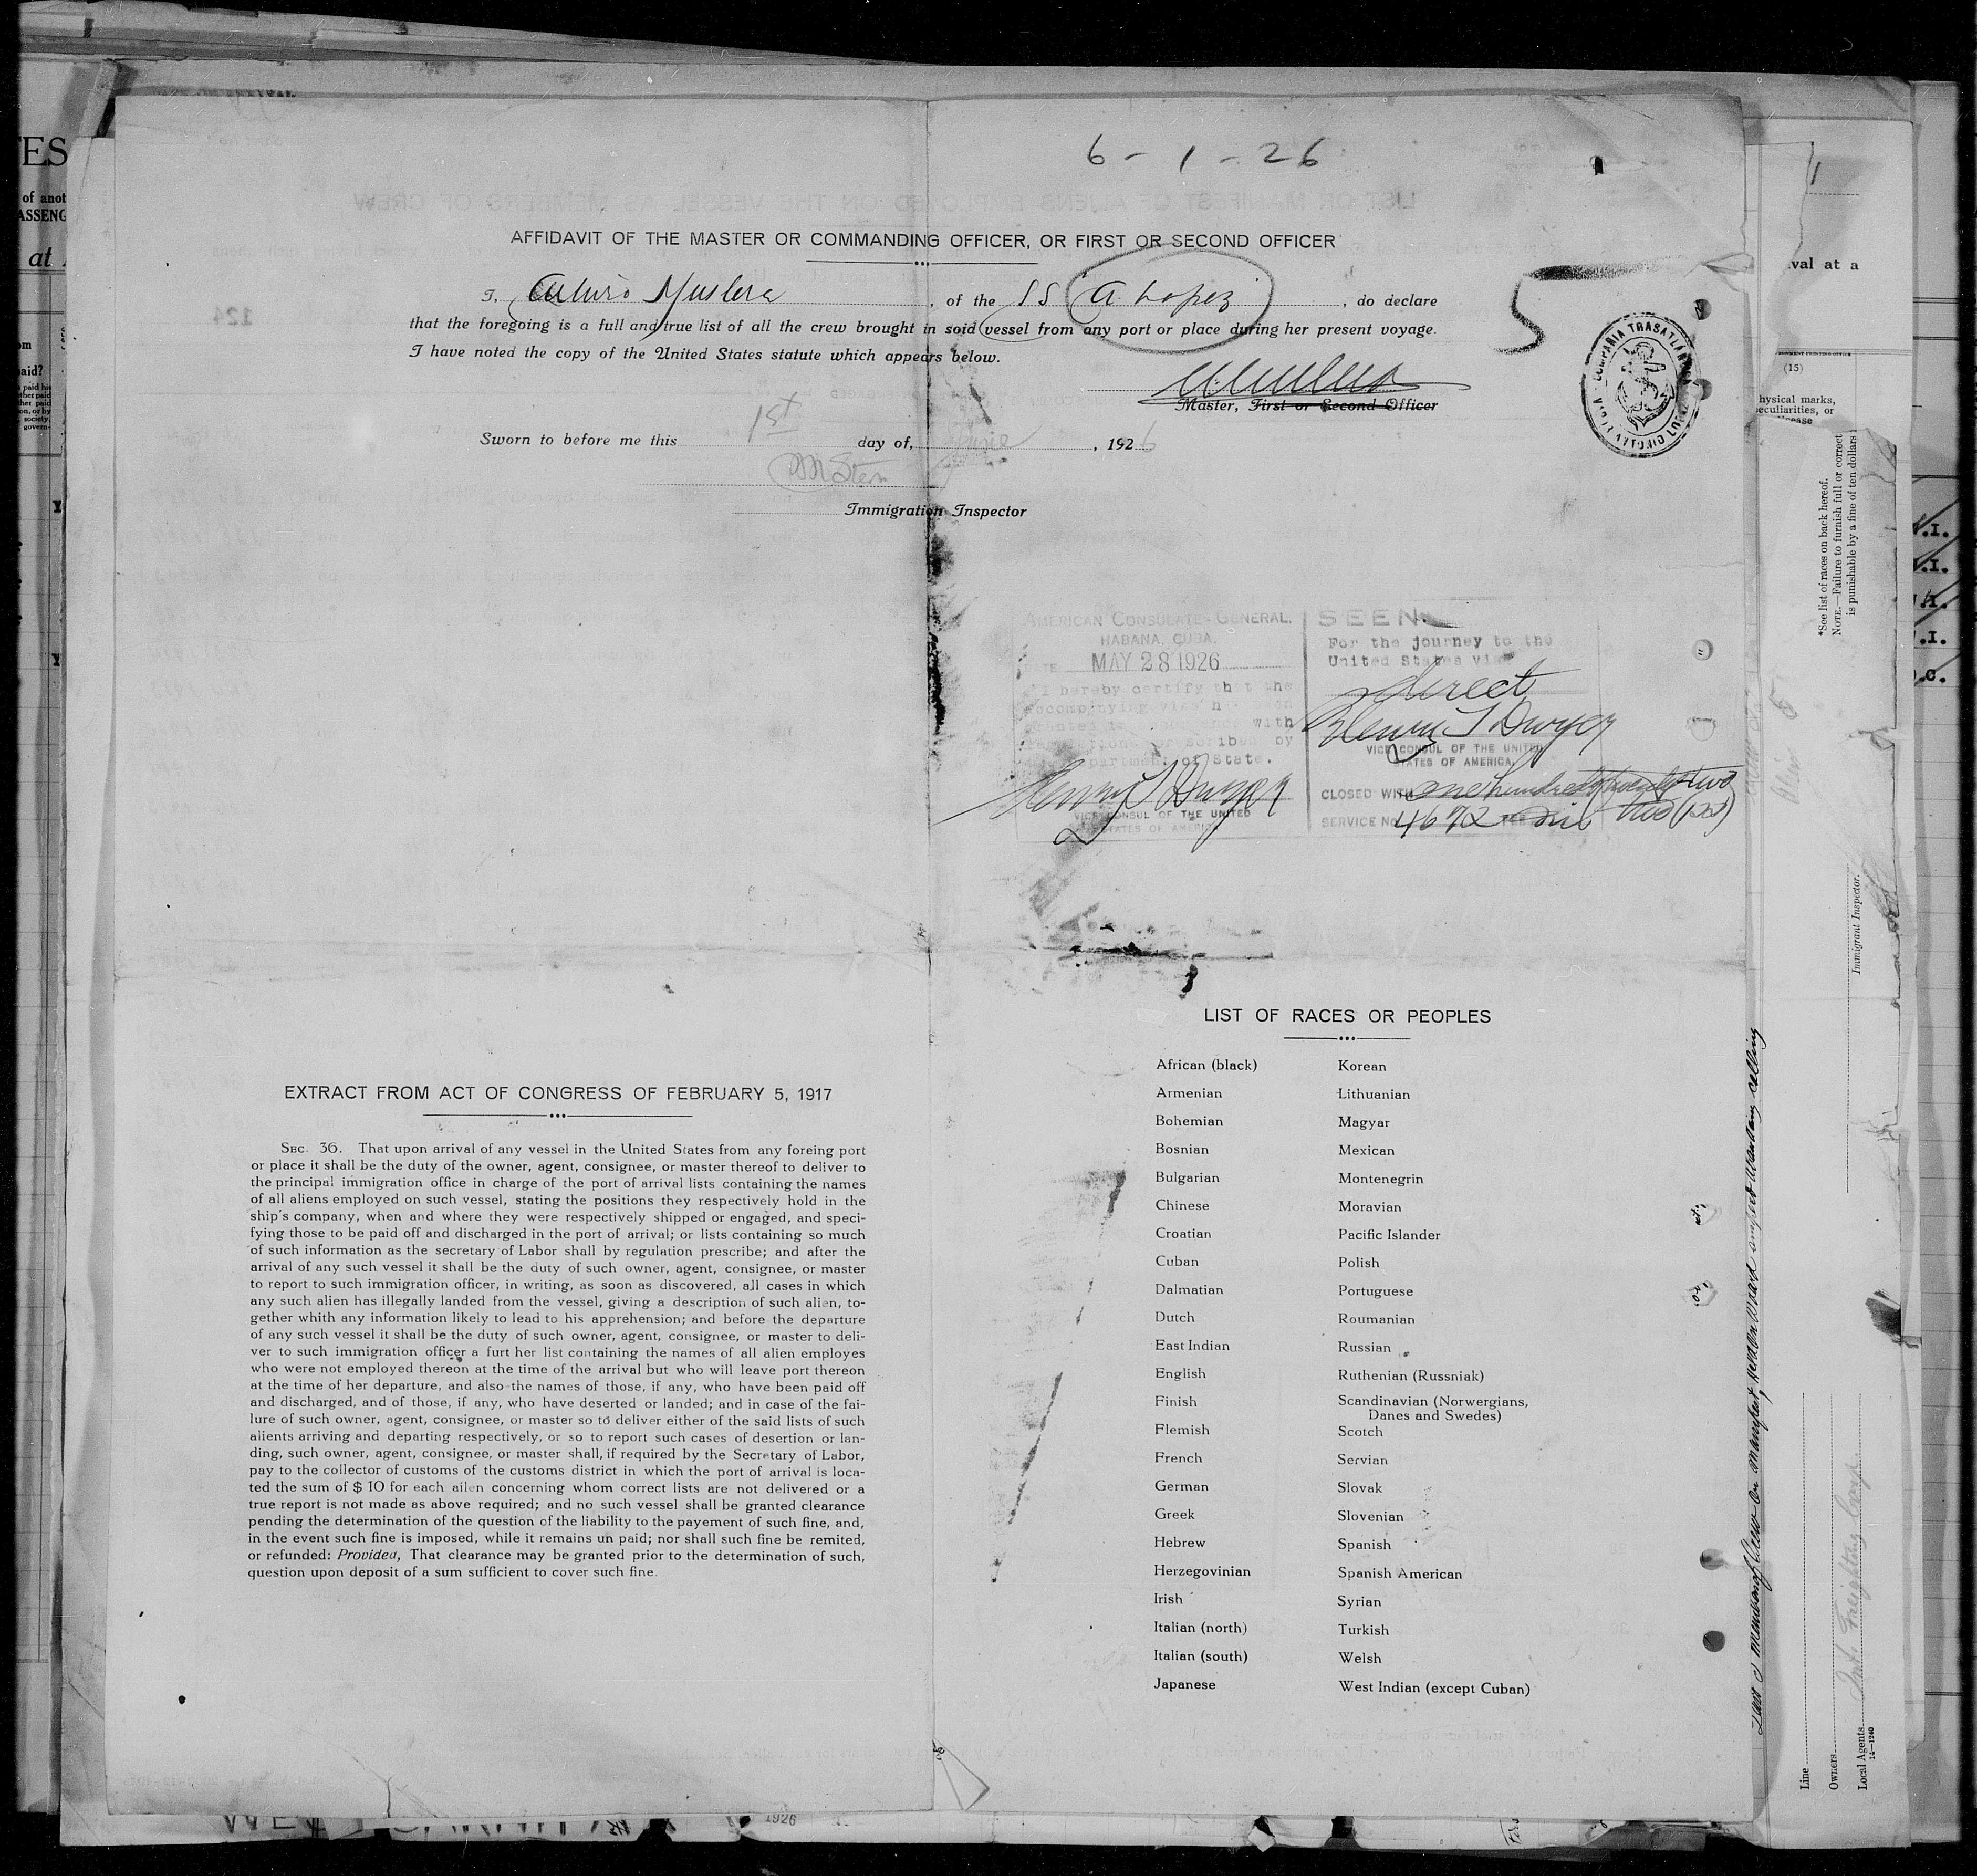 6 - 1 - 26
AFFIDAVIT OF THE MASTER OR COMMANDING OFFICER, OR FIRST OR SECOND OFFICER
I, Arturo, of the SS A. Lopez, do declare
that the foregoing is a full and true list of all the crew brought in soid vessel from any port or place during her present voyage.
I have noted the copy of the United States statute which appears below.
5
Master, First or Second Officer
Sworn to before me this 1st day of, June, 1926
Stern
Immigration Inspector
COMPAÑIA TRASATLANTICA
AMERICAN CONSULATE-GENERAL,
HABANA, CUBA.
DATE MAY 28 1926
I hereby certify that the
accompanying visa has been
granted in with
regulations prescribed by
Department of State.
Henry T Dwyer
VICE CONSUL OF THE UNITED
STATES OF AMERICA
SEEN
For the journey to the
United States via
direct
Henry T Dwyer
VICE CONSUL OF THE UNITED
STATES OF AMERICA
CLOSED WITH one hundred twenty two
SERVICE No. 4692 two (122)
EXTRACT FROM ACT OF CONGRESS OF FEBRUARY 5, 1917
SEC. 36. That upon arrival of any vessel in the United States from any foreing port
or place it shall be the duty of the owner, agent, consignee, or master thereof to deliver to
the principal immigration office in charge of the port of arrival lists containing the names
of all aliens employed on such vessel, stating the positions they respectively hold in the
ship's company, when and where they were respectively shipped or engaged, and speci-
fying those to be paid off and discharged in the port of arrival; or lists containing so much
of such information as the secretary of Labor shall by regulation prescribe; and after the
arrival of any such vessel it shall be the duty of such owner, agent, consignee, or master
to report to such immigration officer, in writing, as soon as discovered, all cases in which
any such alien has illegally landed from the vessel, giving a description of such alien, to-
gether whith any information likely to lead to his apprehension; and before the departure
of any such vessel it shall be the duty of such owner, agent, consignee, or master to deli-
ver to such immigration officer a furt her list containing the names of all alien employes
who were not employed thereon at the time of the arrival but who will leave port thereon
at the time of her departure, and also the names of those, if any, who have been paid off
and discharged, and of those, if any, who have deserted or landed; and in case of the fai-
lure of such owner, agent, consignee, or master so to deliver either of the said lists of such
alients arriving and departing respectively, or so to report such cases of desertion or lan-
ding, such owner, agent, consignee, or master shall, if required by the Secretary of Labor,
pay to the collector of customs of the customs district in which the port of arrival is loca-
ted the sum of $ 10 for each ailen concerning whom correct lists are not delivered or a
true report is not made as above required; and no such vessel shall be granted clearance
pending the determination of the question of the liability to the payement of such fine, and,
in the event such fine is imposed, while it remains un paid; nor shall such fine be remited,
or refunded: Provided, That clearance may be granted prior to the determination of such,
question upon deposit of a sum sufficient to cover such fine.
LIST OF RACES OR PEOPLES
African (black) Korean
Armenian Lithuanian
Bohemian Magyar
Bosnian Mexican
Bulgarian Montenegrin
Chinese Moravian
Croatian Pacific Islander
Cuban Polish
Dalmatian Portuguese
Dutch Roumanian
East Indian Russian
English Ruthenian (Russniak)
Finish Scandinavian (Norwergians,
Danes and Swedes)
Flemish Scotch
French Servian
German Slovak
Greek Slovenian
Hebrew Spanish
Herzegovinian Spanish American
Irish Syrian
Italian (north) Turkish
Italian (south) Welsh
Japanese West Indian (except Cuban)
val at a
(15)
hysical marks,
eculiarities, or
*See list of races on back hereof.
NOTE.—Failure to furnish full or correct
is punishable by a fine of ten dollars
Immigrant Inspector.
Line
Owners
Local Agents Int. Freighting Corp.
14—1240
of anot
ASSENG
at
1926